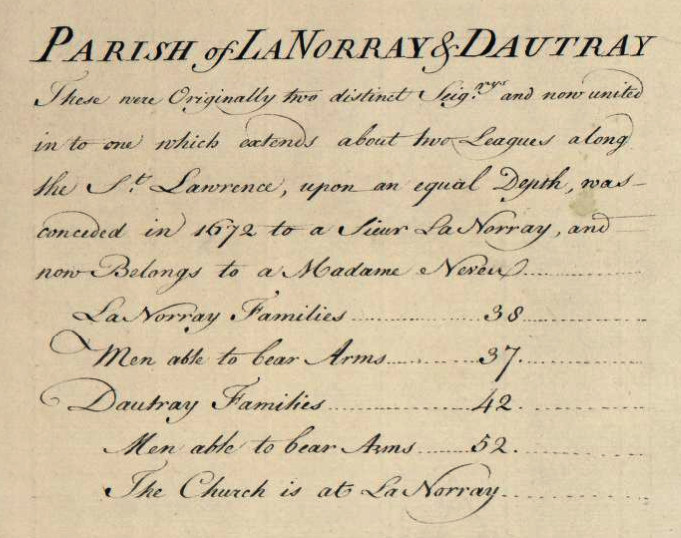 PARISH of LANORRAY & DAUTRAY
These were Originally two distinct Seig.nrys and now united
in to one which extends about two Leagues along
the S.t Lawrence, upon an equal Depth, was
conceded in 1672 to a Sieur La Norray, and
now Belongs to a Madame Neveu
La Norray Families 38
Men able to bear Arms 37.
Dautray Families 42.
Men able to bear Arms 52.
The Church is at La Norray